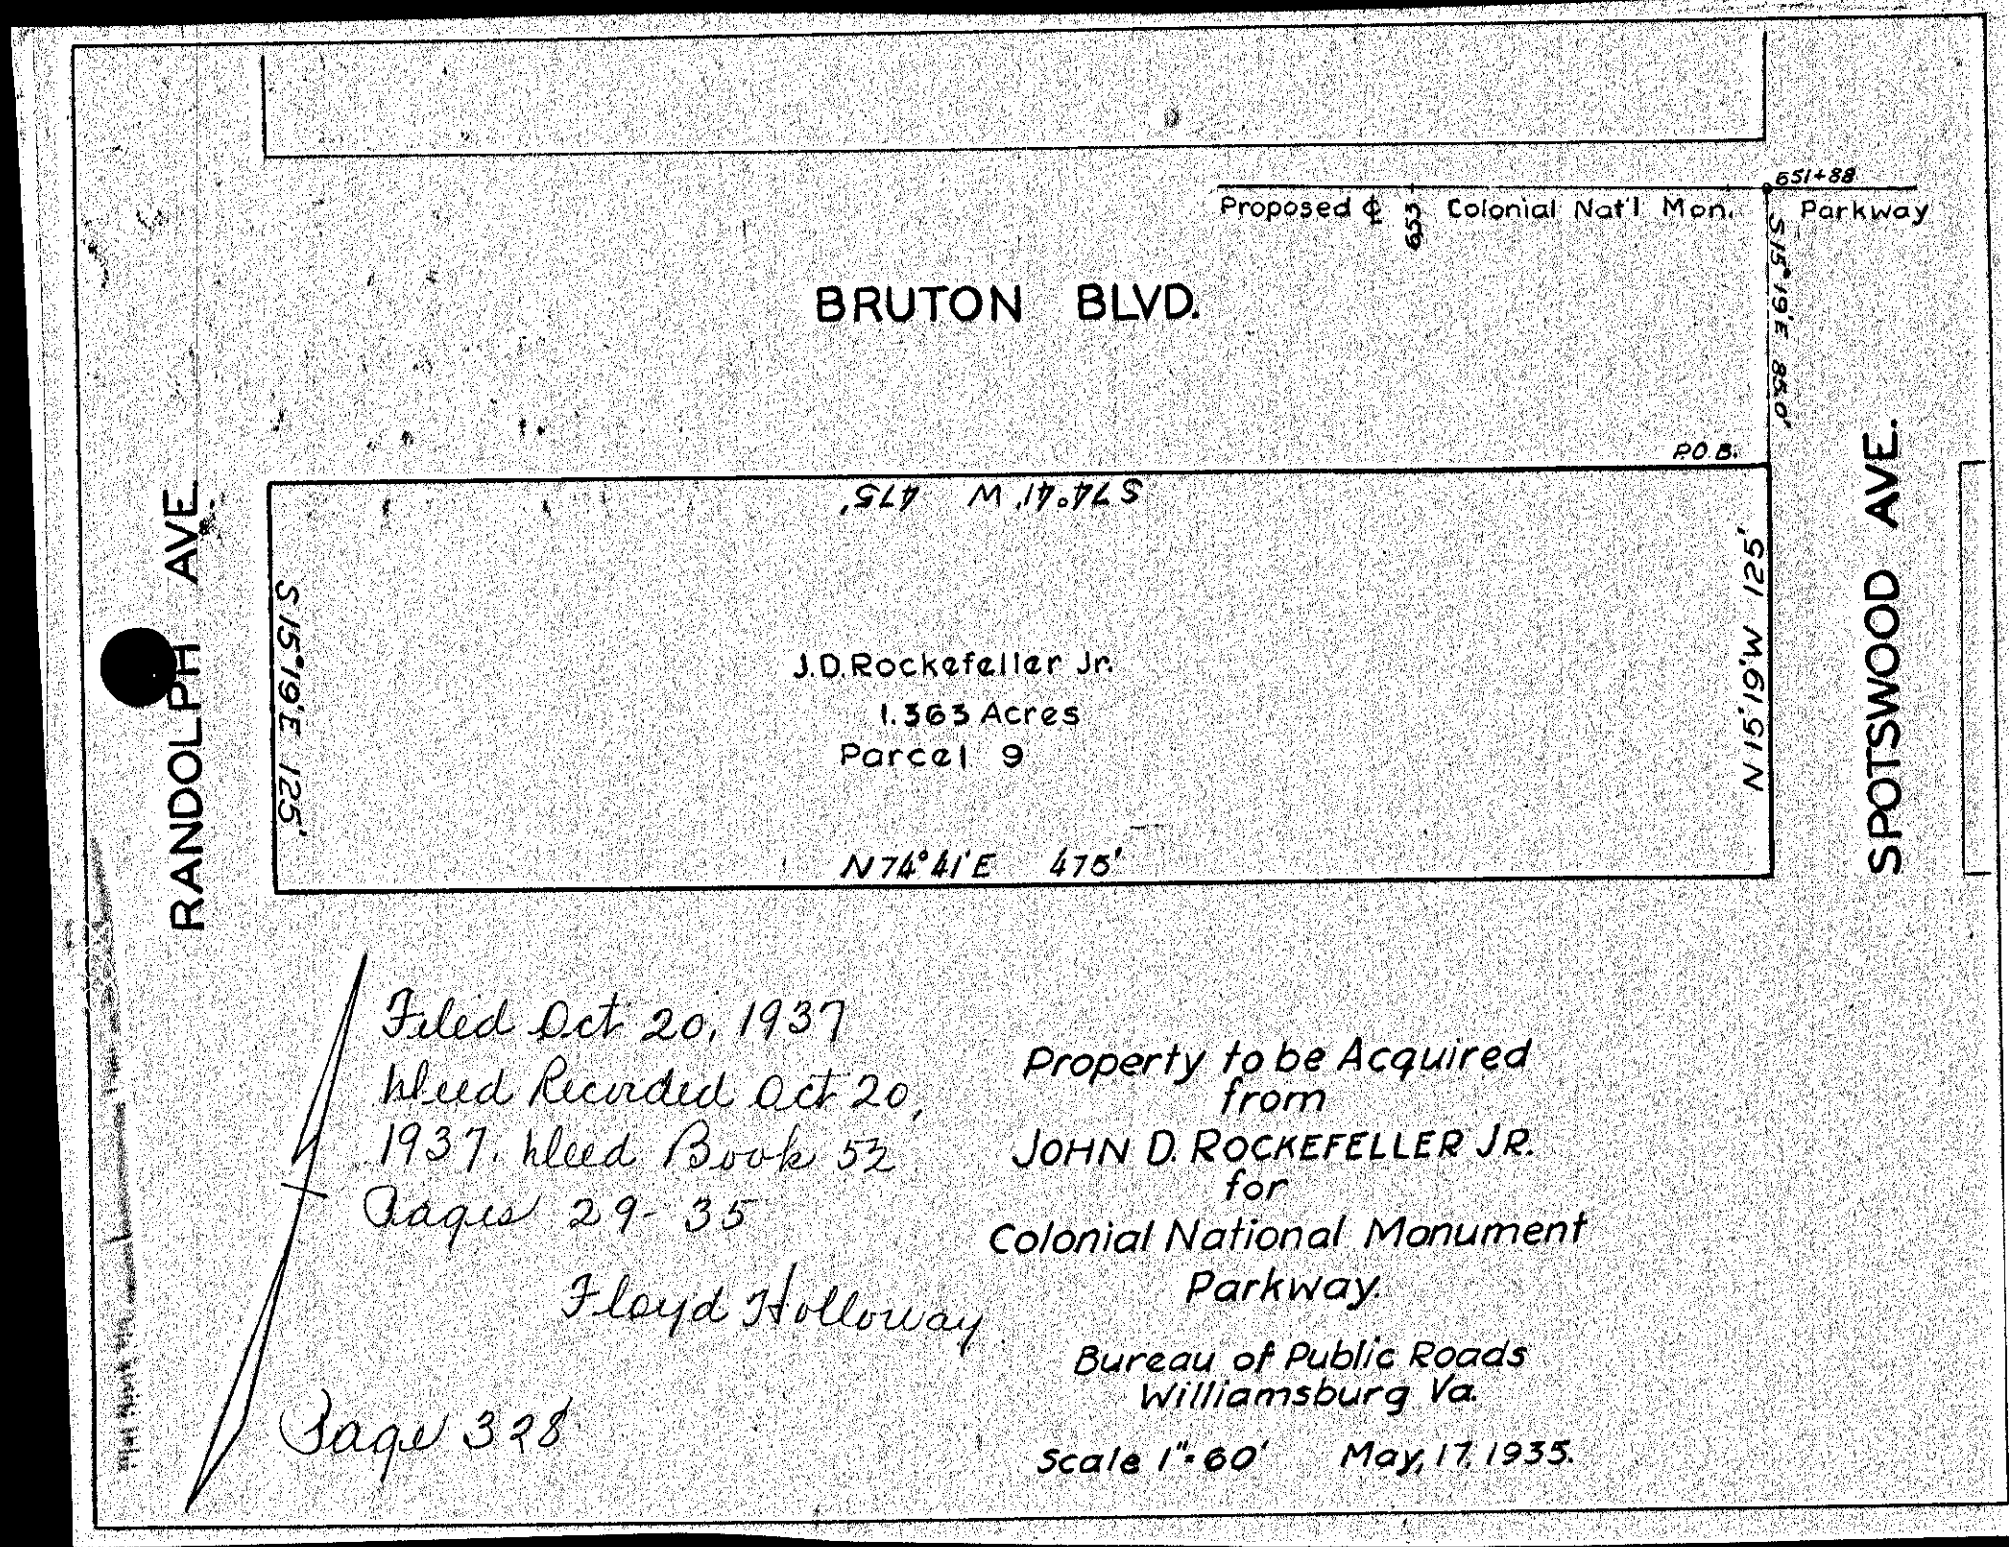 651+88
Proposed ℄ 653 Colonial Nat'l Mon. Parkway
S 15° 19' E 85.0'
BRUTON BLVD.
P.O.B.
S 74° 41' W 475'
RANDOLPH AVE.
SPOTSWOOD AVE.
S 15° 19' E 125'
N 15° 19' W 125'
J.D. Rockefeller Jr.
1.363 Acres
Parcel 9
N 74° 41' E 475'
Filed Oct 20, 1937
Deed Recorded Oct 20,
1937. Deed Book 52
Pages 29-35
Floyd Holloway
Page 328
Property to be Acquired
from
JOHN D. ROCKEFELLER JR.
for
Colonial National Monument
Parkway.
Bureau of Public Roads
Williamsburg Va.
Scale 1"=60' May, 17, 1935.